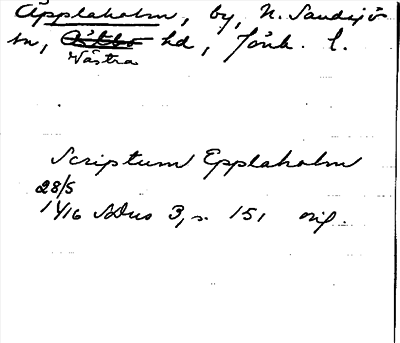 Äpplaholm, by, N. Sandsjö
sn, Västra hd, Jönk. l.
Scriptum Epplaholm
28/5
1416 SDns 3, s. 151 orig.